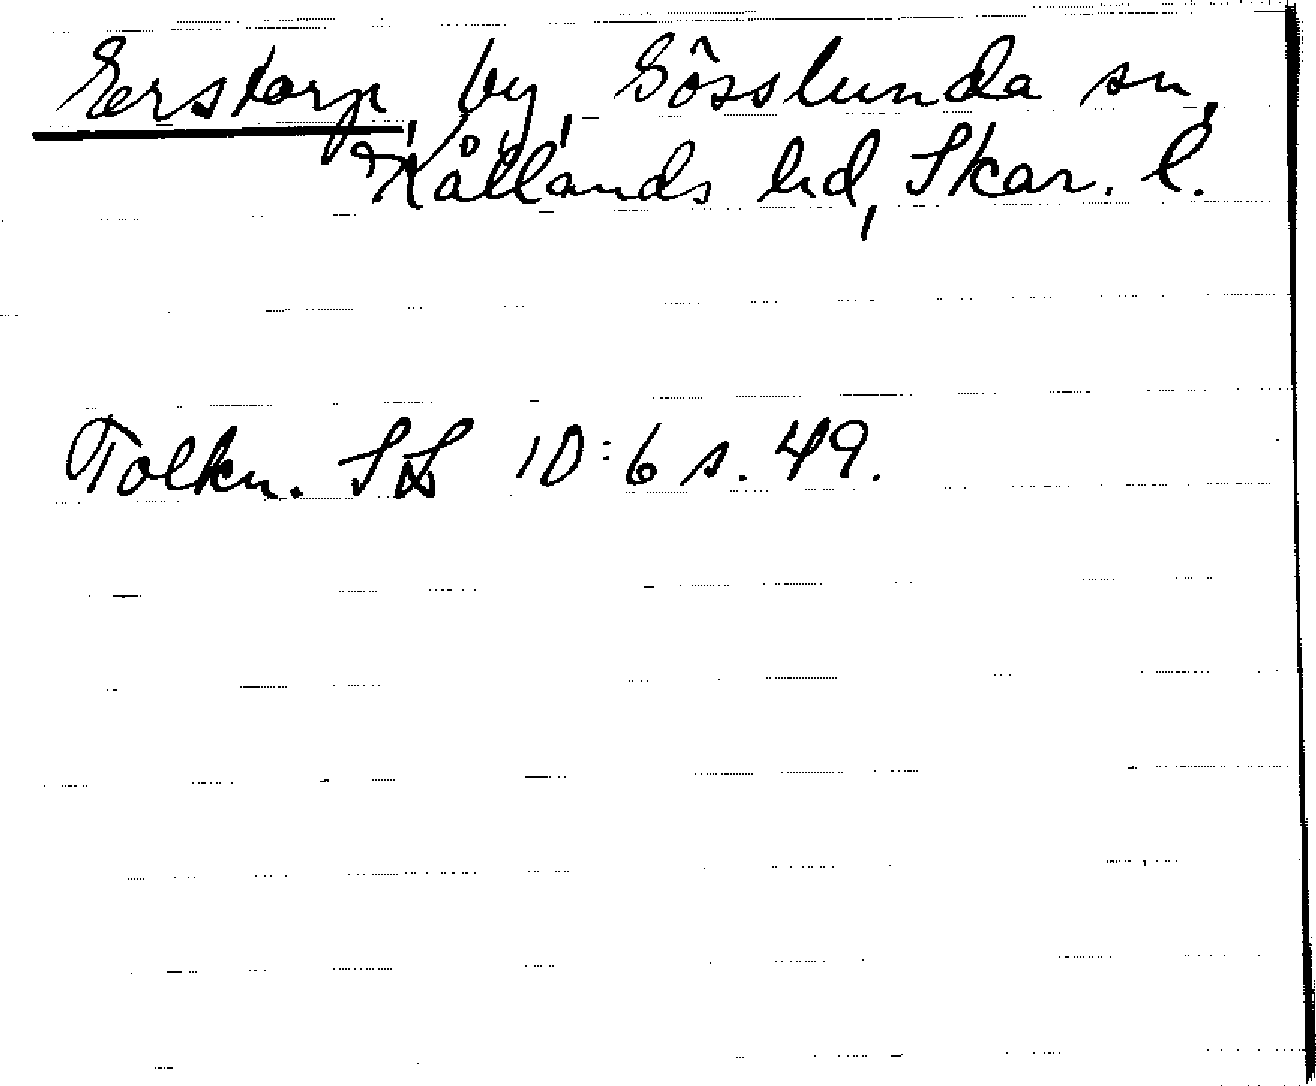 Eerstorp, by, Gösslunda sn,
Kållands hd, Skar. l.
Tolkn. SOSk 10:6 s. 49.